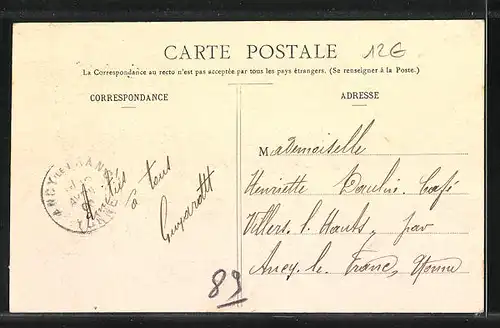 CARTE POSTALE
12€
La Correspondance au recto n'est pas acceptée par tous les pays étrangers. (Se renseigner à la Poste.)
CORRESPONDANCE
ADRESSE
Amitiés
à tous
Guyardtt
ANCY LE FRANC
YONNE
Mademoiselle
Henriette Café
Villers. l. Hauts, par
Ancy. le. Franc, Yonne
89